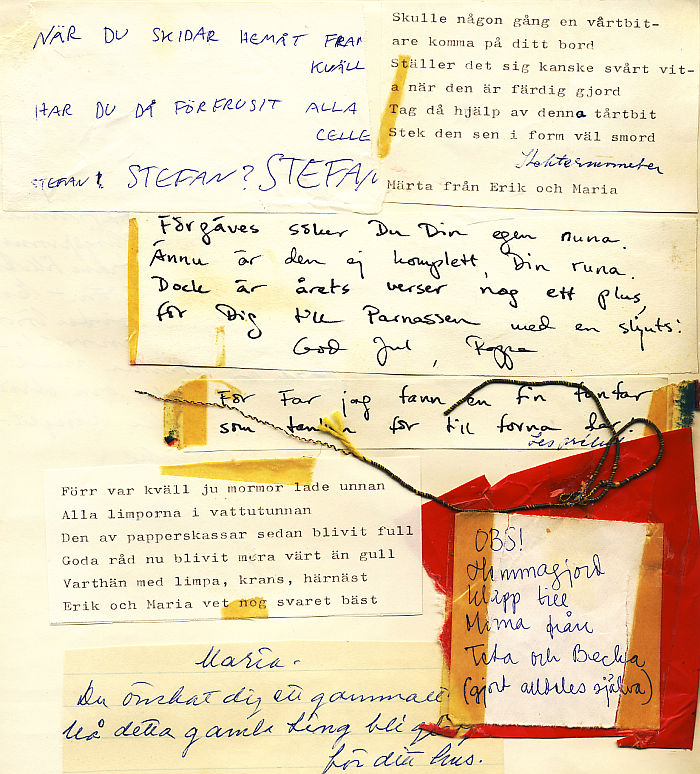 NÄR DU SKIDAR HEMÅT FRÅN
KVÄLL
HAR DU DÅ FÖRFRUSIT ALLA
CELLE
STEFAN? STEFAN? STEFAN
Skulle någon gång en vårtbit-
are komma på ditt bord
Ställer det sig kanske svårt vit-
a när den är färdig gjord
Tag då hjälp av denna tårtbit
Stek den sen i form väl smord
Märta från Erik och Maria
Förgäves söker Du Din egen runa.
Ännu är den ej komplett, Din runa.
Dock är årets verser nog ett plus,
för Dig till Parnassen med en skjuts!
God Jul, Pappa
För Far jag fann en fin fanfar
som tanken för till forna dar.
Förr var kväll ju mormor lade unnan
Alla limporna i vattutunnan
Den av papperskassar sedan blivit full
Goda råd nu blivit mera värt än gull
Varthän med limpa, krans, härnäst
Erik och Maria vet nog svaret bäst
OBS!
Hemmagjord
klapp till
Mima från
Tota och Becka
(gjort alldeles själva)
Maria.
Du önskat dig ett gammalt
detta gamla ting bli
för ditt hus.